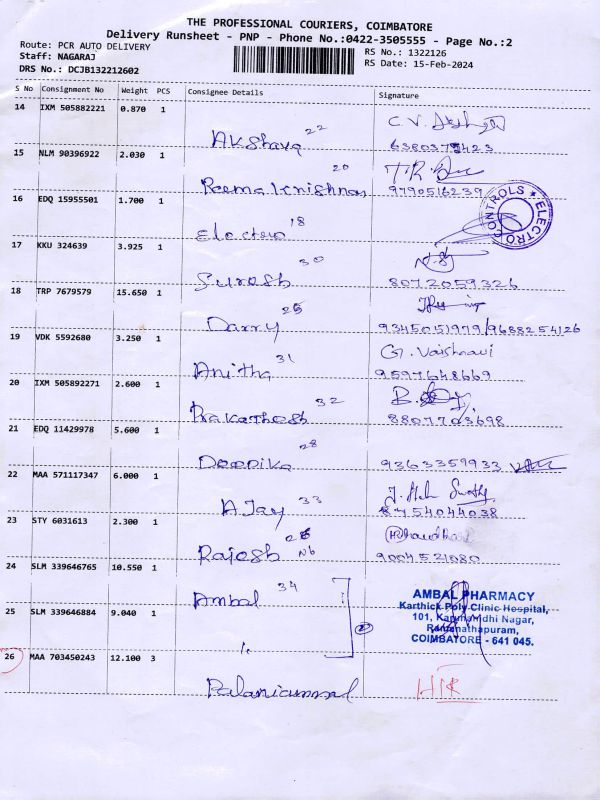 THE PROFESSIONAL COURIERS, COIMBATORE
Delivery Runsheet - PNP - Phone No.:0422-3505555 - Page No.:2
Route: PCR AUTO DELIVERY
RS No.: 1322126
Staff: NAGARAJ
RS Date: 15-Feb-2024
DRS No.: DCJB132212602
S No Consignment No Weight PCS Consignee Details Signature
14 IXM 505882221 0.870 1
Akshaya 22 C.V.
6380375423
15 NLM 90396922 2.030 1
20
Reema Krishnan 9790516239
16 EDQ 15955501 1.700 1
Electro 18
ELECTRO CONTROLS
17 KKU 324639 3.925 1
Suresh 30 8072059326
18 TRP 7679579 15.650 1
Darry 25 9345051979/9688254126
19 VDK 5592680 3.250 1
G. Vaishnavi
Anitha 31 9597648669
20 IXM 505892271 2.600 1
Prakathesh 32 8807703698
21 EDQ 11429978 5.600 1
Deepika 28 9363359933
22 MAA 571117347 6.000 1
AJay 33 8754044038
23 STY 6031613 2.300 1
Rajesh N6 9004521080
24 SLM 339646765 10.550 1
Ambal 34
AMBAL PHARMACY
Karthick Poly Clinic Hospital,
25 SLM 339646884 9.040 1
101, Karunanidhi Nagar,
Ramanathapuram,
COIMBATORE - 641 045.
2
26 MAA 703450243 12.100 3
Palaniammal